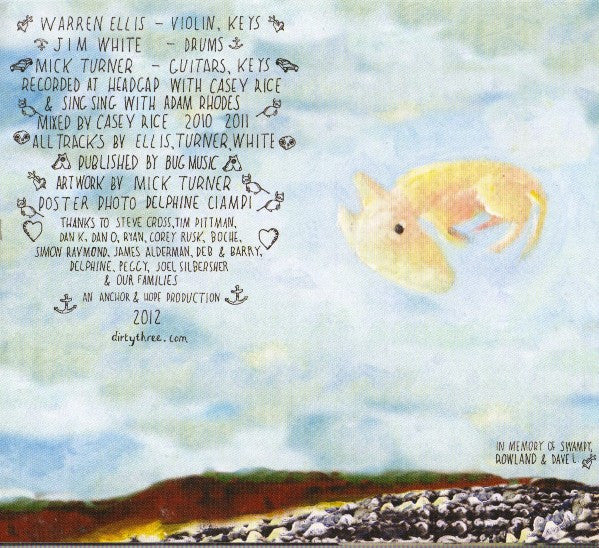 WARREN ELLIS – VIOLIN, KEYS
JIM WHITE – DRUMS
MICK TURNER – GUITARS, KEYS
RECORDED AT HEADGAP WITH CASEY RICE
& SING SING WITH ADAM RHODES
MIXED BY CASEY RICE 2010 2011
ALL TRACKS BY ELLIS, TURNER, WHITE
PUBLISHED BY BUG MUSIC
ARTWORK BY MICK TURNER
POSTER PHOTO DELPHINE CIAMPI
THANKS TO STEVE CROSS, TIM PITTMAN,
DAN K, DAN O, RYAN, COREY RUSK, BOCHE,
SIMON RAYMOND, JAMES ALDERMAN, DEB & BARRY,
DELPHINE, PEGGY, JOEL SILBERSHER
& OUR FAMILIES
AN ANCHOR & HOPE PRODUCTION
2012
dirtythree.com
IN MEMORY OF SWAMPY,
ROWLAND & DAVE L.